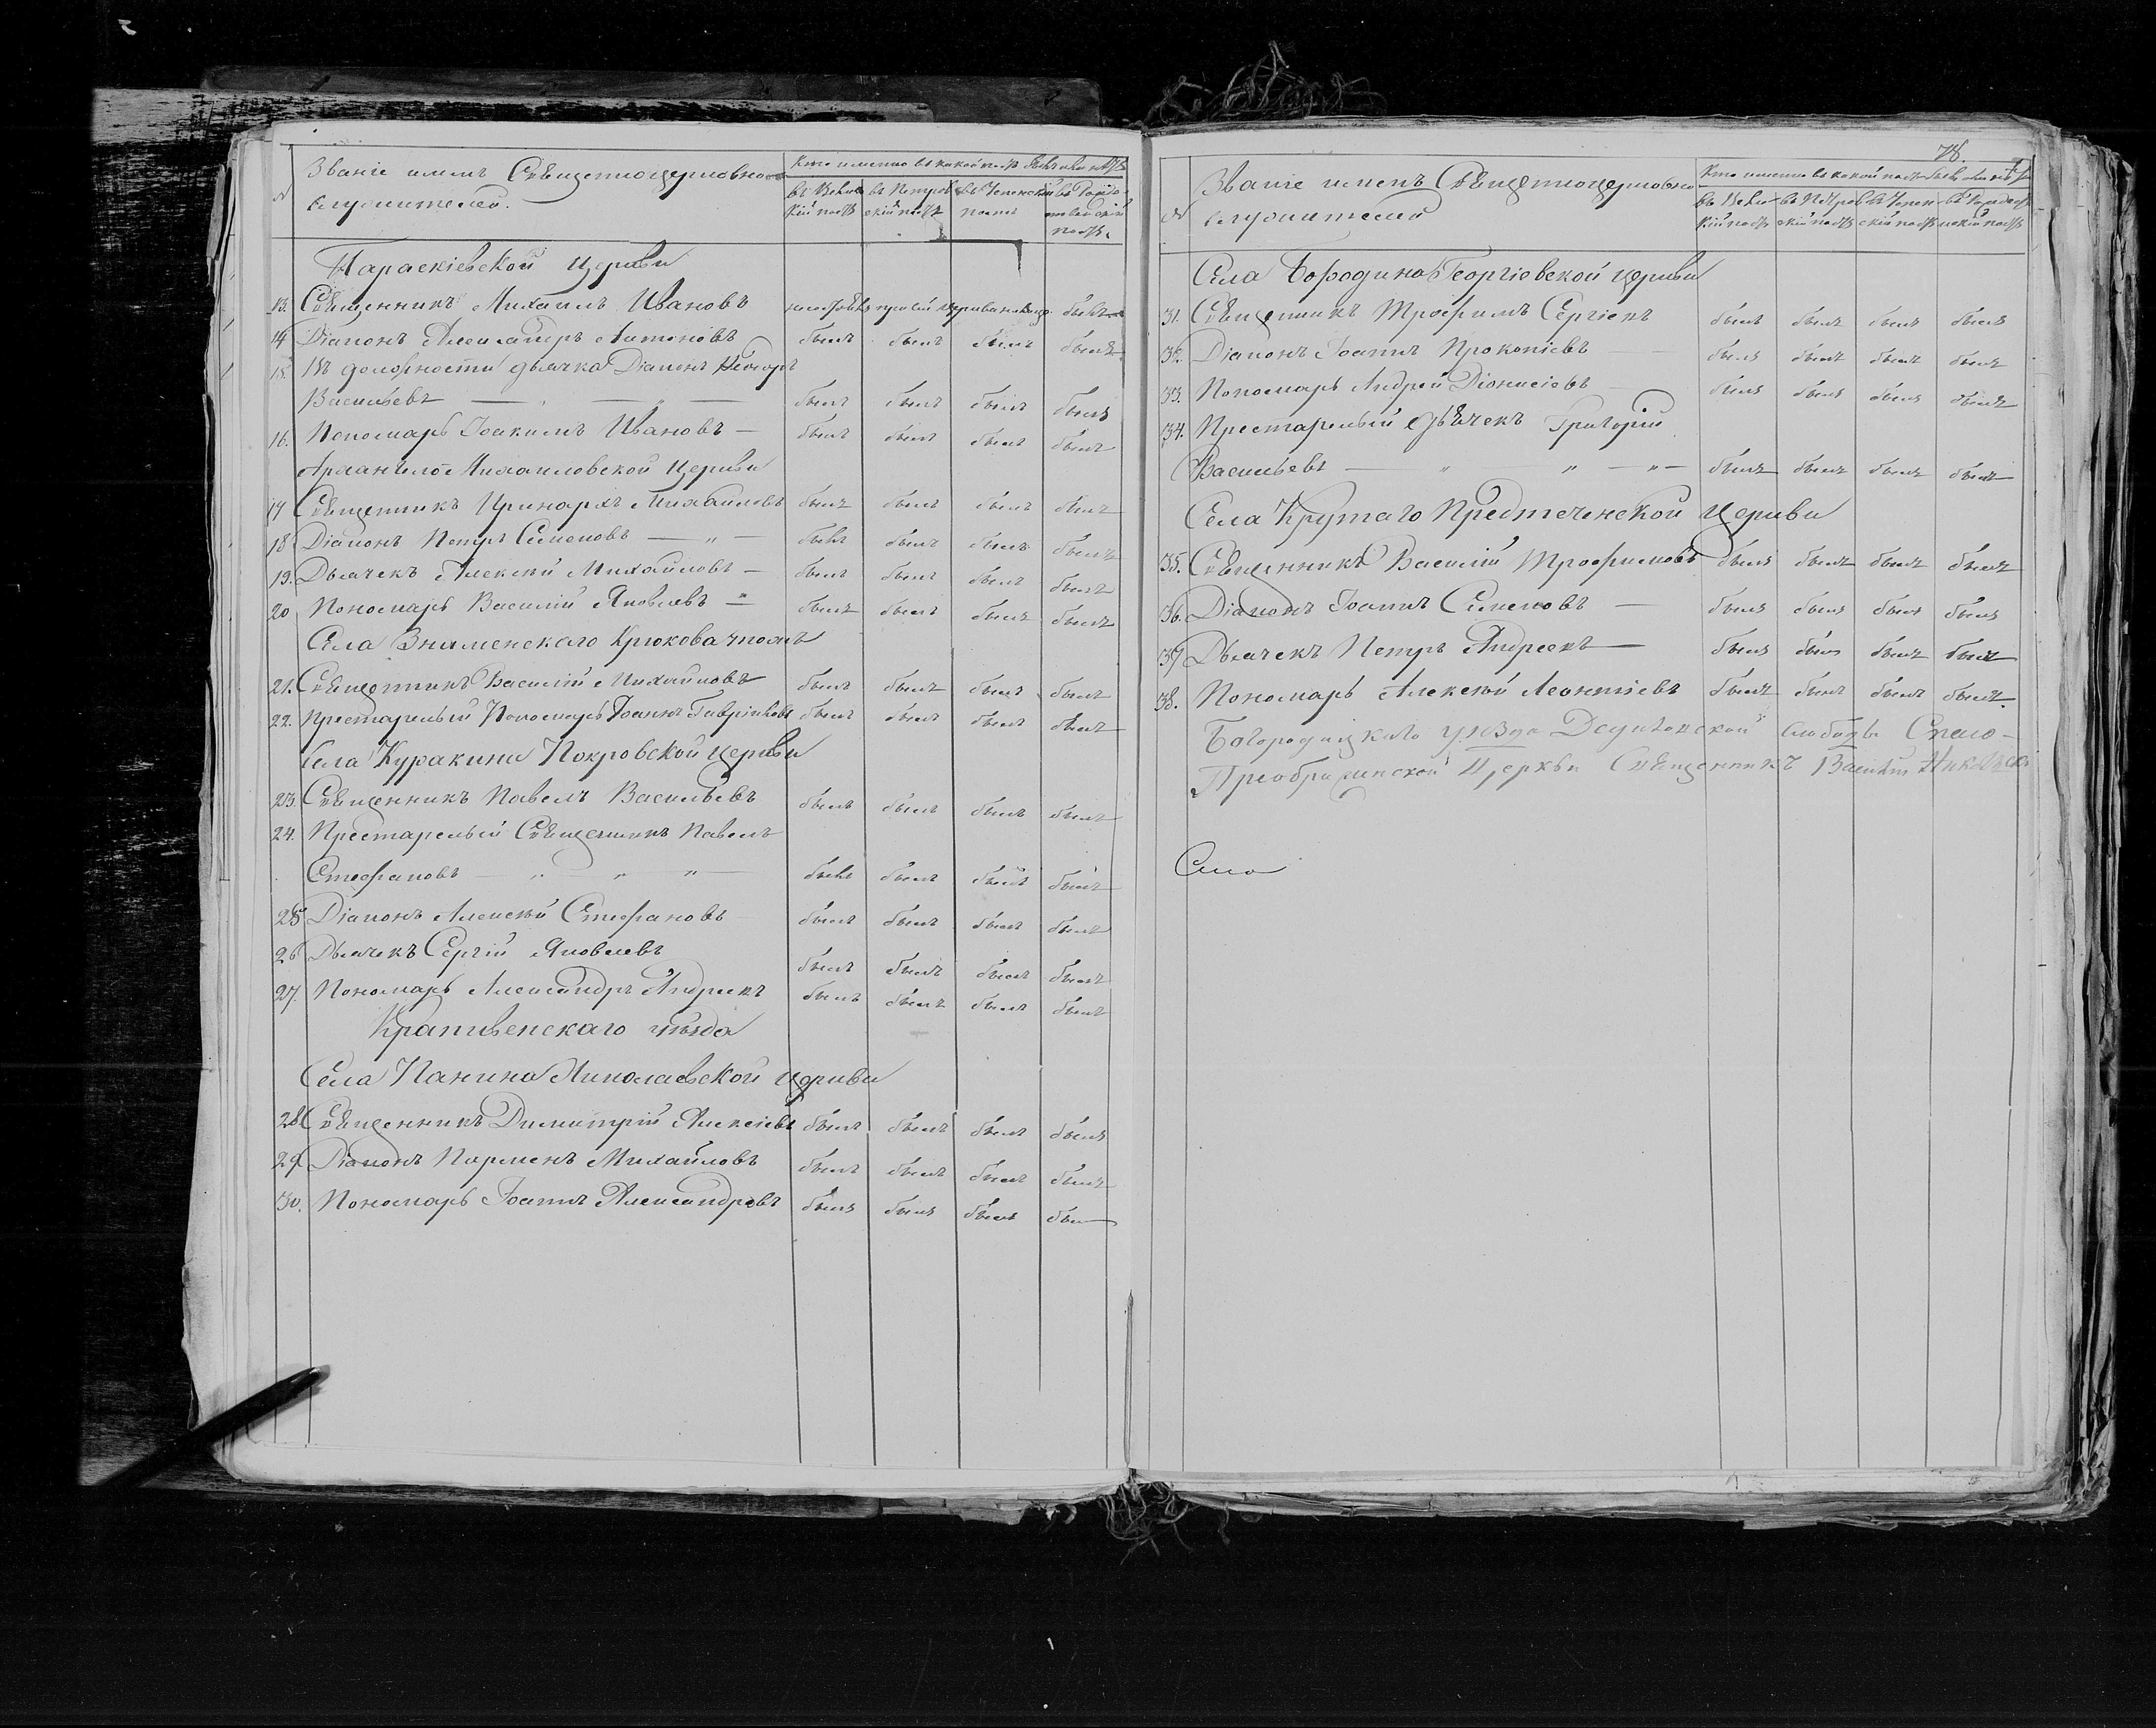 Званіе именъ Священноцерковно
служителей.
въ Вели
кій постъ
въ Петров
скій постъ
въ Успенскій
постъ
въ Рожде
ственскій
постъ.
Параскіевской Церкви
13. Священникъ Михаилъ Ивановъ былъ
14 Діаконъ Александръ Антоновъ былъ былъ былъ былъ
15. Въ должности дьячка Діаконъ Ѳеодоръ
Васильевъ — „ — „ — былъ былъ былъ былъ
16. Пономарь Іоакимъ Ивановъ — былъ былъ былъ былъ
Архангело-Михаиловской Церкви
17 Священникъ Иринархъ Михайловъ былъ былъ былъ былъ
18 Діаконъ Петръ Семеновъ — „ — былъ былъ былъ былъ
19. Дьячекъ Алексѣй Михайловъ — былъ былъ былъ былъ
20 Пономарь Василій Яковлевъ — былъ былъ былъ былъ
Села Знаменскаго Крюково тожъ
21. Священникъ Василій Михайловъ былъ былъ былъ былъ
22. Престарелый Пономарь Іоаннъ Гавріиловъ былъ былъ былъ былъ
Села Куракина Покровской Церкви
23. Священникъ Павелъ Васильевъ былъ былъ былъ былъ
24. Престарелый Священникъ Павелъ
Стефановъ — „ — „ — „ — былъ былъ былъ былъ
25 Діаконъ Алексѣй Стефановъ былъ былъ былъ былъ
26 Дьячекъ Сергій Яковлевъ былъ былъ былъ былъ
27. Пономарь Александръ Андреевъ былъ былъ былъ былъ
Крапивенскаго уѣзда
Села Панина Николаевской Церкви
28. Священникъ Димитрій Алексіевъ былъ былъ былъ былъ
29. Діаконъ Парменъ Михайловъ былъ былъ былъ былъ
30. Пономарь Іоаннъ Александровъ былъ былъ былъ былъ
78.
Званіе именъ Священноцерковно
служителей
въ Вели
кій постъ
въ Петров
скій постъ
въ Успен
скій постъ
въ Рождест
венскій постъ
Села Бородина Георгіевской Церкви
31. Священникъ Трофимъ Сергіевъ былъ былъ былъ былъ
32. Діаконъ Іоаннъ Прокопіевъ — былъ былъ былъ былъ
33. Пономарь Андрей Діонисіевъ — былъ былъ былъ былъ
34. Престарелый Дьячекъ Григорій
Васильевъ — „ „ — „ — былъ былъ былъ былъ
Села Крутаго Предтеченской Церкви
35. Священникъ Василій Трофимовъ былъ былъ былъ былъ
36. Діаконъ Іоаннъ Семеновъ — былъ былъ былъ былъ
37 Дьячекъ Петръ Андреевъ — былъ былъ былъ былъ
38. Пономарь Алексѣй Леонтіевъ былъ былъ былъ былъ.
Богородицкаго уѣзда Дедиловской слободы Спасо-
Преображенской Церкви Священникъ Василій